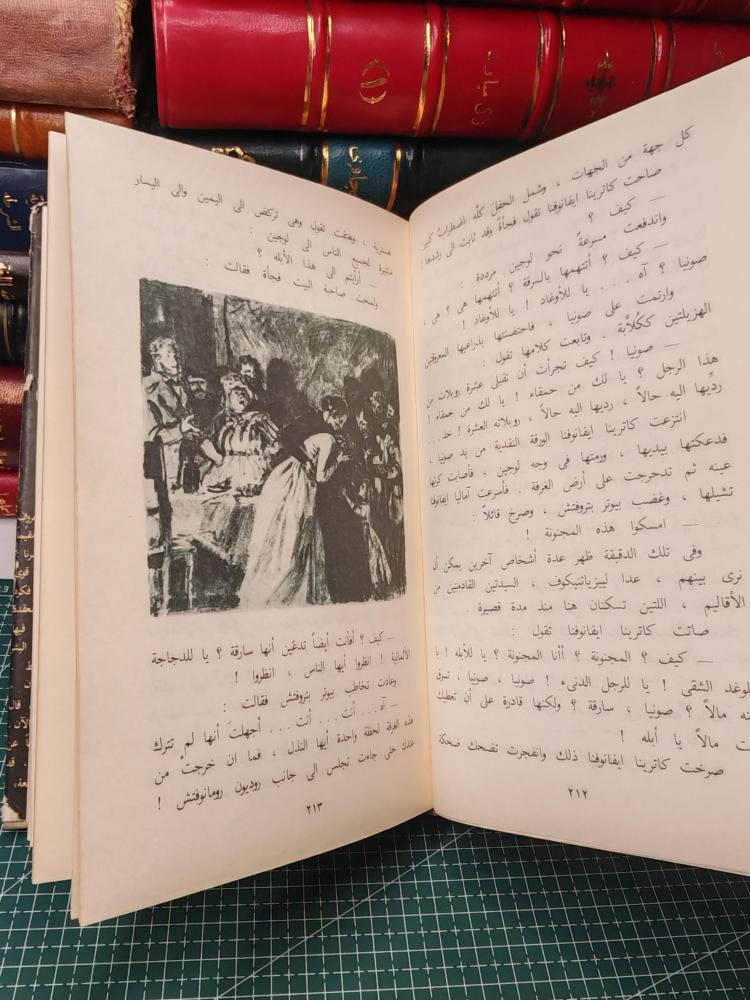 كل جهة من الجهات ، وشمل الحفل كله اضطرابٌ كبير
صاحت كاترينا ايفانوفنا تقول فجأةً وقد ثابت الى رشدها :
— كيف ؟
واندفعت مسرعةً نحو لوجين مرددة :
— كيف ؟ أتتهمها بالسرقة ؟ أتتهمها هى ؟ هى ،
صونيا ؟ آه ... يا للأوغاد ! يا للأوغاد !
وارتمت على صونيا ، فاحتضنتها بذراعيها المعروقتين
الهزيلتين ككُلاَّبة . وتابعت كلامها تقول :
— صونيا ! كيف تجرأت أن تقبلى عشرة روبلات من
هذا الرجل ؟ يا لك من حمقاء ! يا لك من حمقاء !
ردِّيها اليه حالاً ، رديها اليه حالاً ، روبلاته العشرة ! خذ ...
انتزعت كاترينا ايفانوفنا الورقة النقدية من يد صونيا ،
فدعكتها بيديها ، ورمتها فى وجه لوجين ، فأصابت كرتها
عينه ثم تدحرجت على أرض الغرفة . فأسرعت آماليا ايفانوفنا
تشيلها ، وغضب بيوتر بتروفتش ، وصرخ قائلاً :
— امسكوا هذه المجنونة !
وفى تلك الدقيقة ظهر عدة أشخاص آخرين يمكن أن
نرى بينهم ، عدا ليبزياتنيكوف ، السيدتين القادمتين من
الأقاليم ، اللتين تسكنان هنا منذ مدة قصيرة .
صاتت كاترينا ايفانوفنا تقول :
— كيف ؟ المجنونة ؟ أأنا المجنونة ؟ يا للأبله ! يا
للوغد الشقى ! يا للرجل الدنىء ! صونيا ، صونيا ، تسرق
مالاً ؟ صونيا ، سارقة ؟ ولكنها قادرة على أن تعطيك
مالاً يا أبله !
صرخت كاترينا ايفانوفنا ذلك وانفجرت تضحك ضحكة
٢١٢
هسترية ، وهتفت تقول وهى تركض الى اليمين والى اليسار
مشيرة لجميع الناس الى لوجين :
— أرأيتم الى هذا الأبله ؟
ولمحت صاحبة البيت فجأة فقالت :
— كيف ؟ أفأنت أيضاً تدعَّين أنها سارقة ؟ يا للدجاجة
الألمانية ! انظروا أيها الناس ، انظروا !
وعادت تخاطب بيوتر بتروفتش فقالت :
— آه ... أنت ... أنت ... أجهلتَ أنها لم تترك
هذه الغرفة لحظة واحدة أيها النذل ، فما ان خرجتْ من
عندك حتى جاءت تجلس الى جانب روديون رومانوفتش !
٢١٣